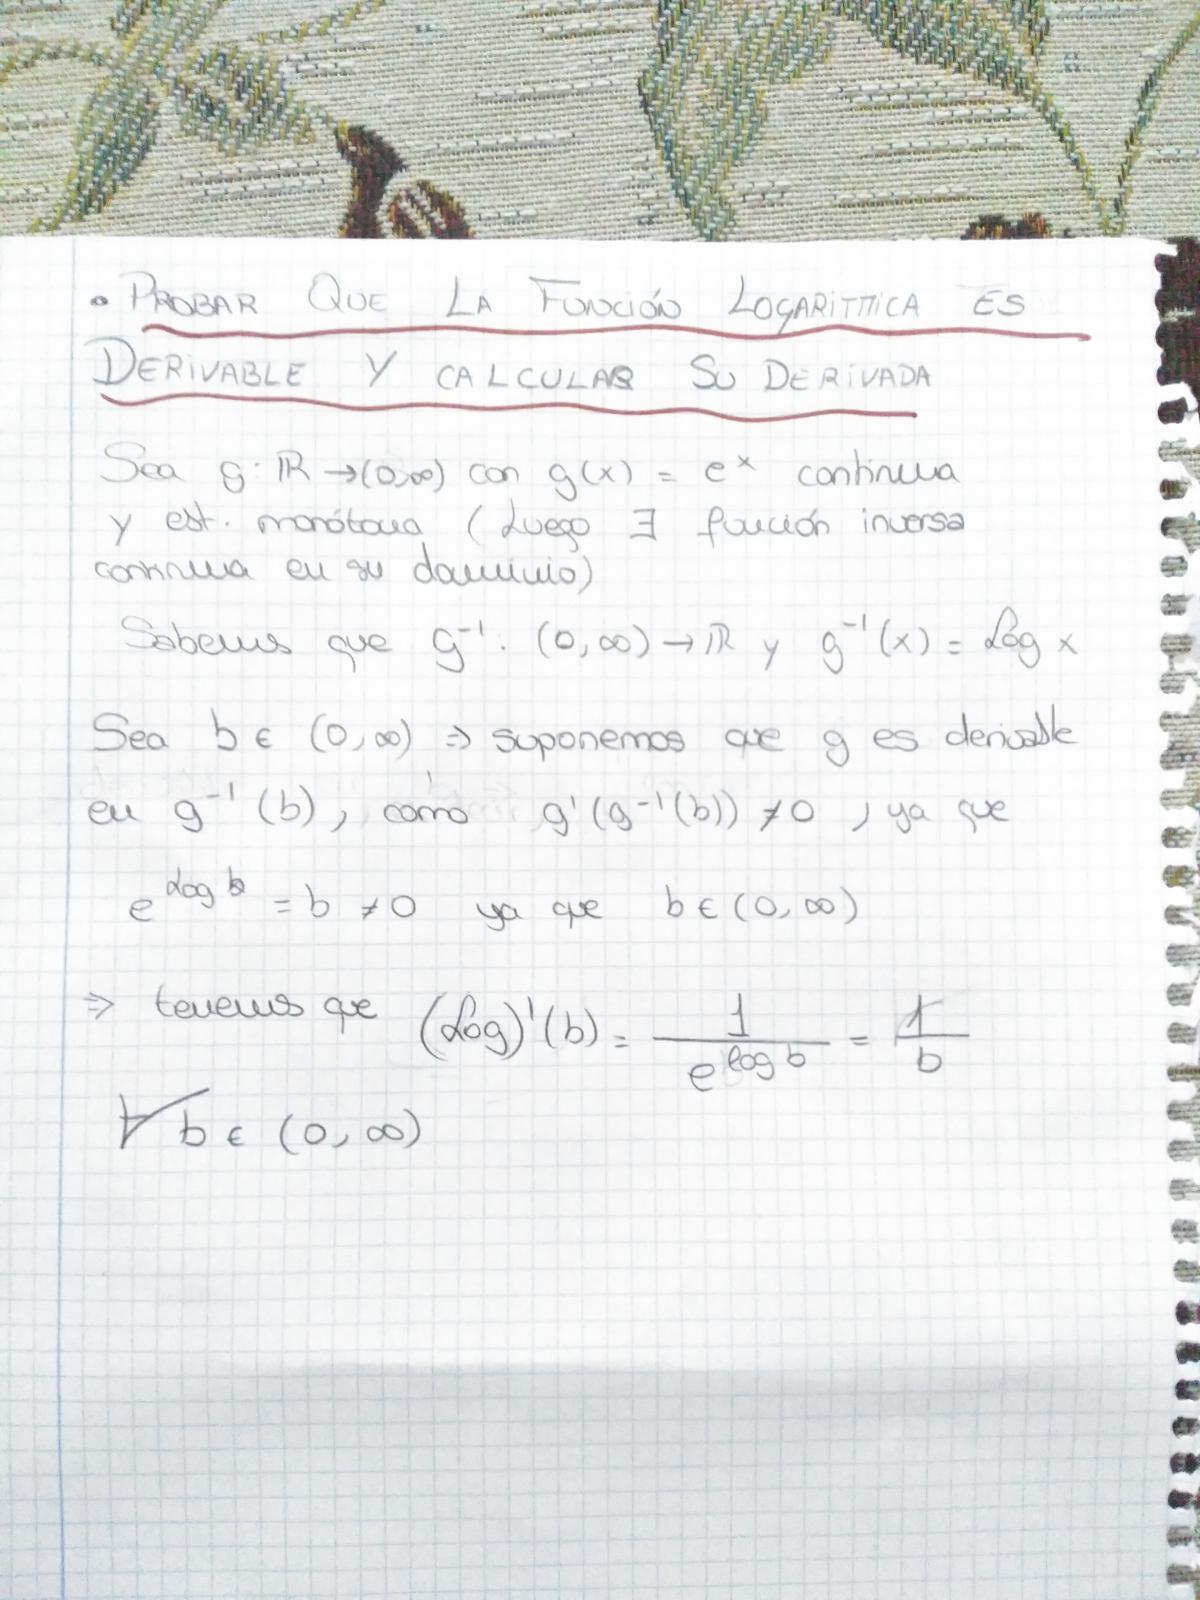 • PROBAR QUE LA FUNCIÓN LOGARITMICA ES
DERIVABLE Y CALCULAR SU DERIVADA
Sea g: ℝ → (0,∞) con g(x) = eˣ continua
y est. monótona (Luego ∃ función inversa
continua en su dominio)
Sabemos que g⁻¹: (0,∞) → ℝ y g⁻¹(x) = Log x
Sea b ∈ (0,∞) ⇒ suponemos que g es derivable
en g⁻¹(b), como g'(g⁻¹(b)) ≠ 0, ya que
e^{Log b} = b ≠ 0 ya que b ∈ (0,∞)
⇒ tenemos que (Log)'(b) = 1/e^{log b} = 1/b
∀ b ∈ (0,∞)